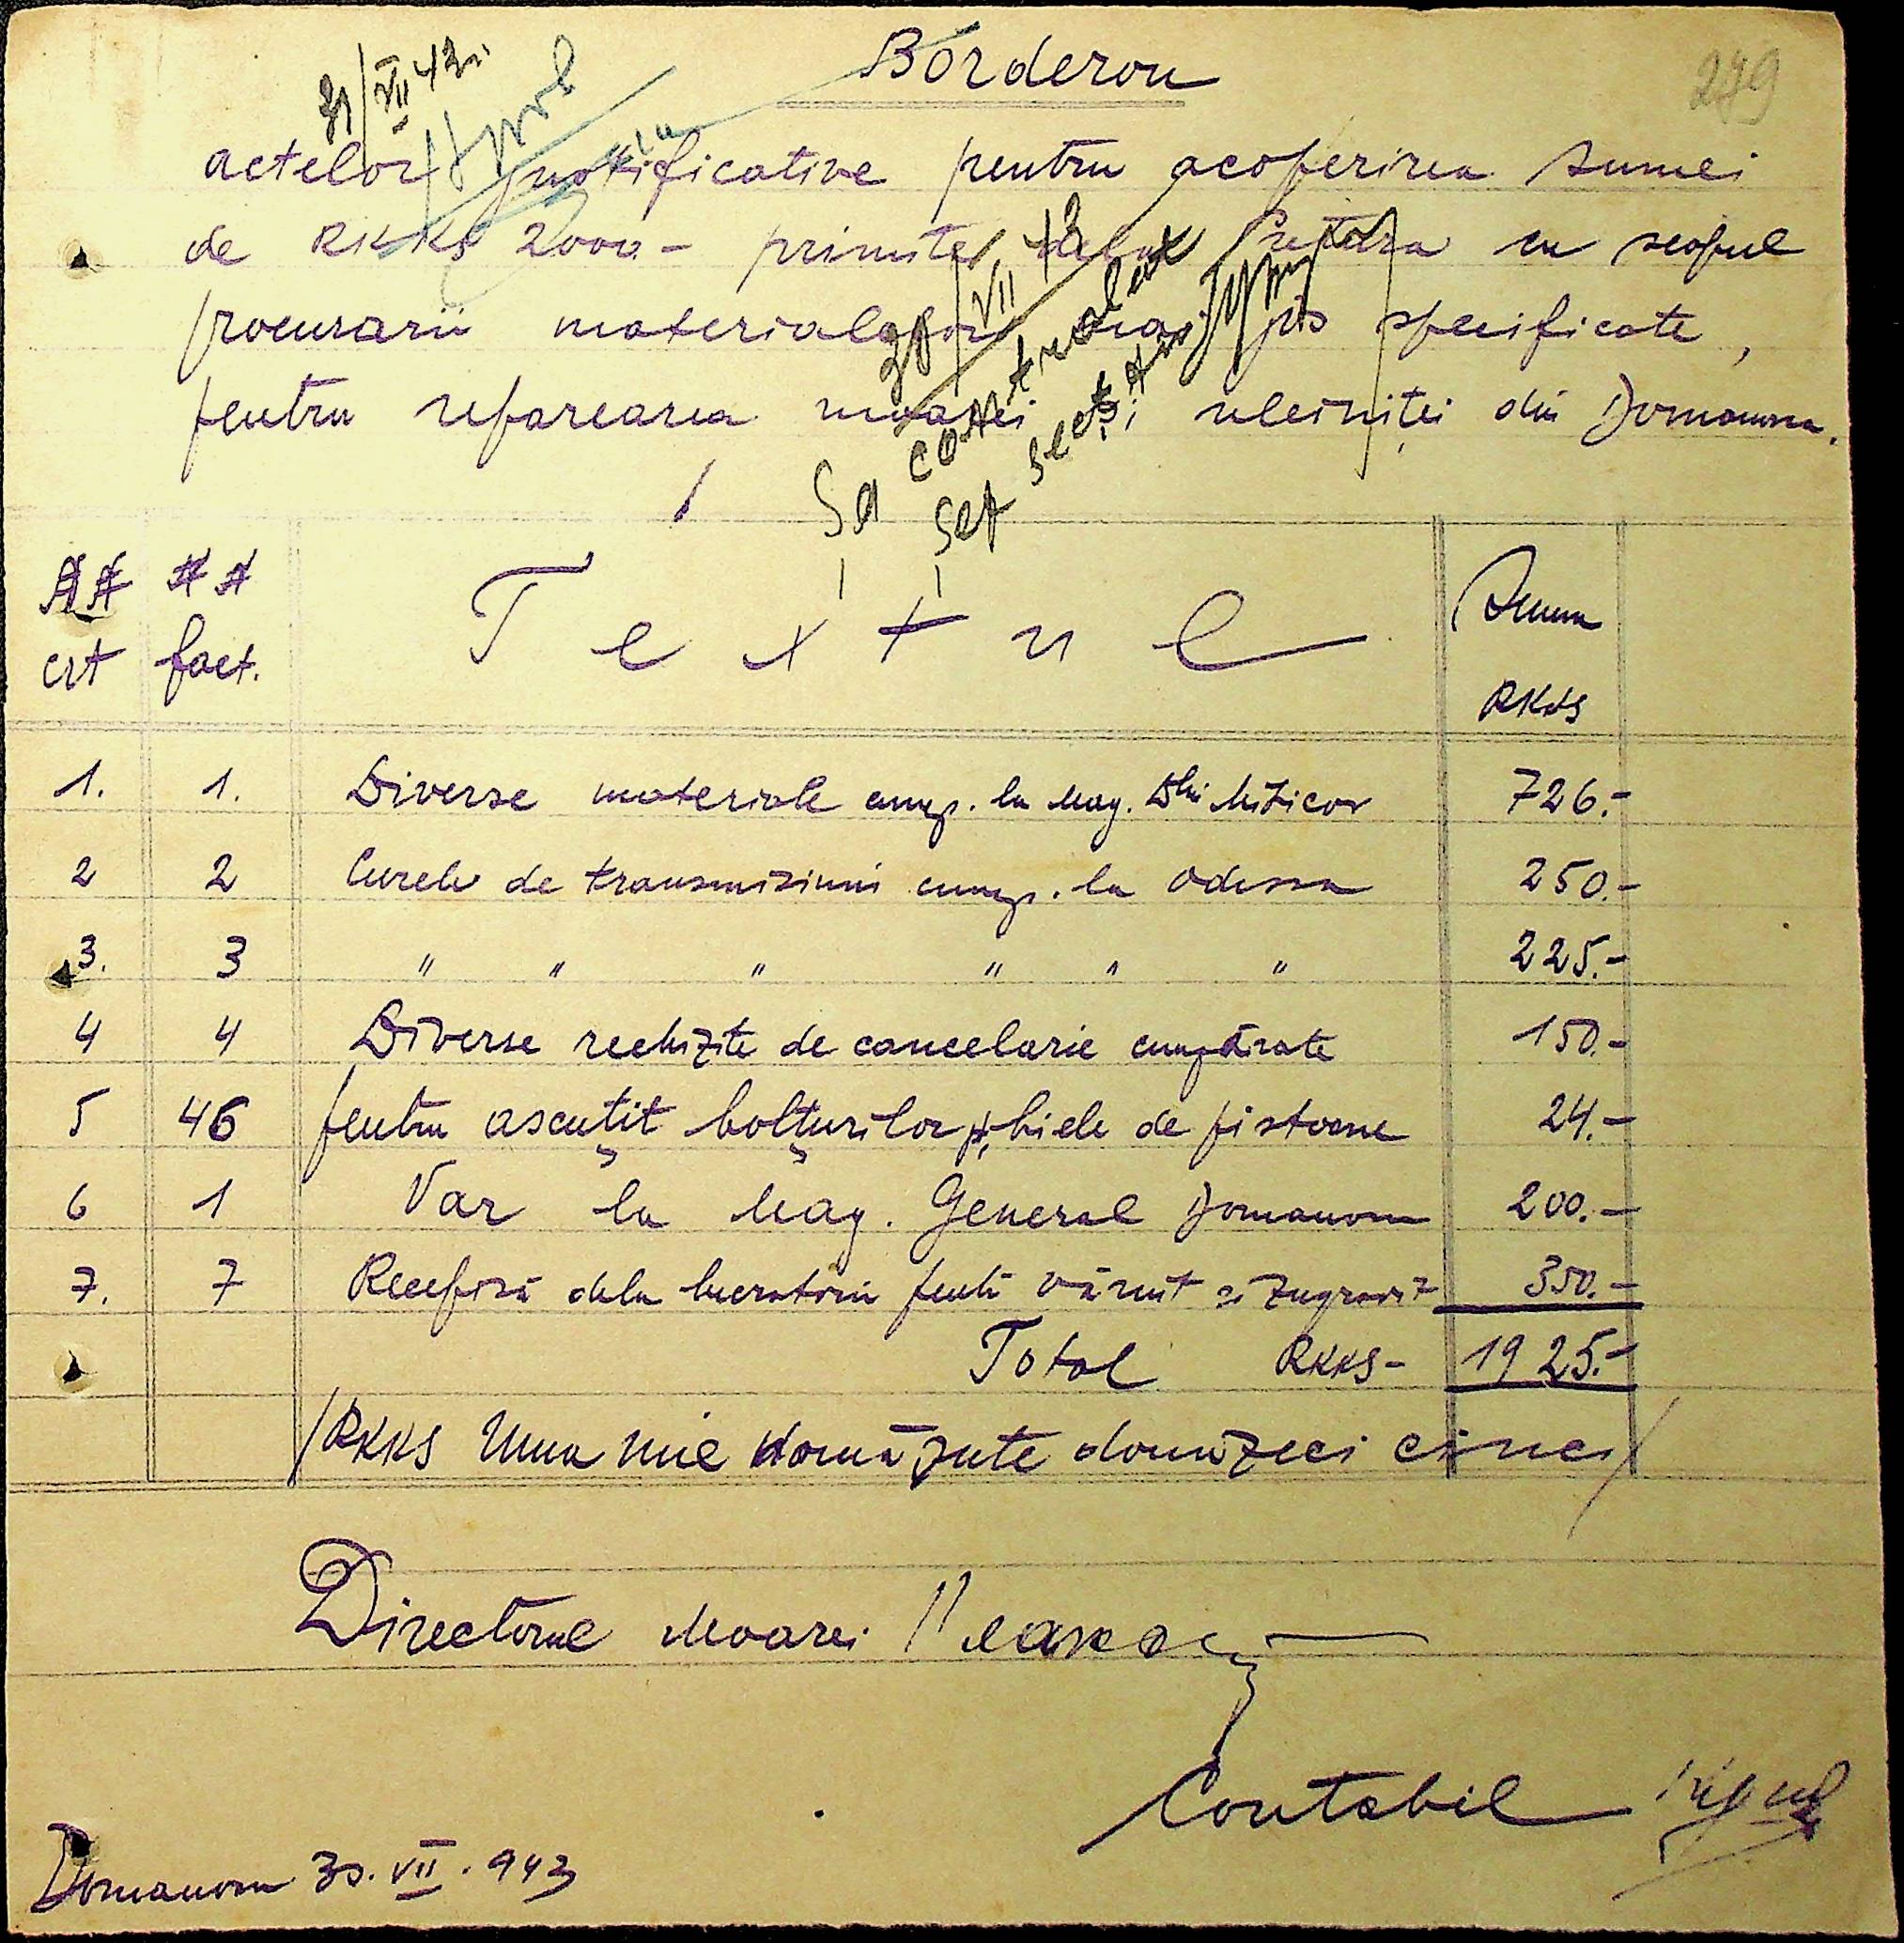 Borderou
299
31/VII 43
actelor justificative pentru acoperirea sumei
de RKKS 2000.- primite dela Pretura cu scopul
procurarii materialelor mai jos specificate,
pentru reparearea moarei și uleiniței din Domanovca.
30/VII 43
Se controleax
Șef secție
## ## Textul Suma
crt fact. RKKS
1. 1. Diverse materiale cump. la Mag. Dlui Miticov 726.-
2 2 Curele de transmisiuni cump. la Odessa 250.-
3. 3 " " " " " " 225.-
4 4 Diverse rechizite de cancelarie cumpărate 150.-
5 46 pentru ascuțit bolțurilor pt. biele de pistoane 24.-
6 1 Var la Mag. General Domanovca 200.-
7. 7 Recepisă dela lucratorii pentru văruit si zugravit 350.-
Total RKKS- 1925.-
/RKKS Una mie nouă sute douăzeci cinci/
Directorul Moarei
Contabil
Domanovca 30.VII.943